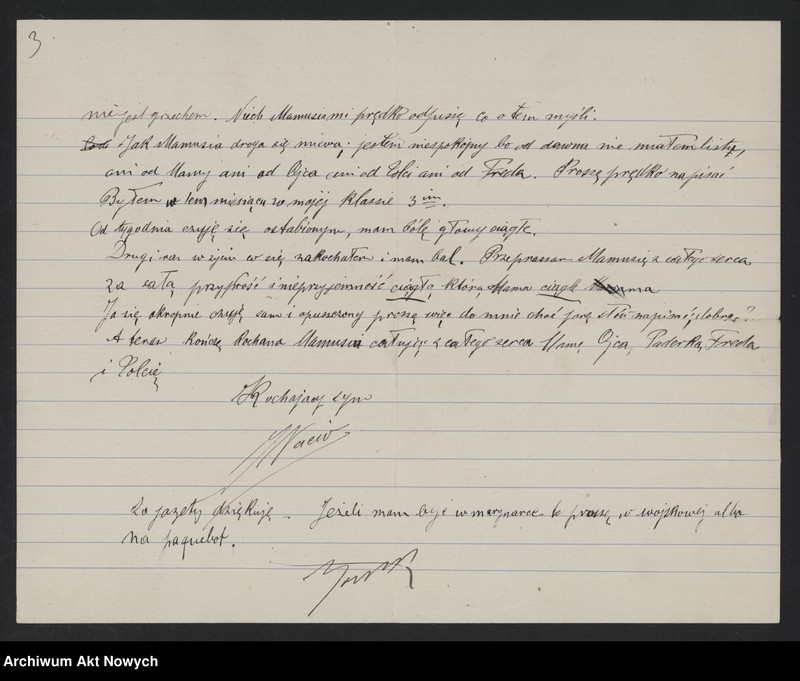 3
nie jest grzechem. Niech Mamusia mi prędko odpisię co o tem myśli.
Jak Mamusia droga się miewa; jestem niespokojny bo od dawna nie miałem listu,
ani od Mamy ani od Ojca ani od Lolci ani od Freda. Proszę prędko napisać
Byłem w tem miesiącu w mojéj klassie 3 im.
Od tygodnia czuję się osłabionym, mam bóle głowy ciągłe.
Drugi raz w życiu się zakochałem i mam bal. Przepraszam Mamusię z całego serca
za całą przykrość i nieprzyjemność ciągłą którą Mama ciągle ma
Ja się okropnie czuję sam i opuszczony proszę więc do mnie choć parę słów napisać, dobrze?
A teraz kończę Kochana Mamusiu całując z całego serca Mamę, Ojca, Freda
i Lolcię
Kochający syn
Wacio
Za gazety dziękuję. Jeżeli mam być w marynarce to proszę w wojskowéj albo
na paquebot.